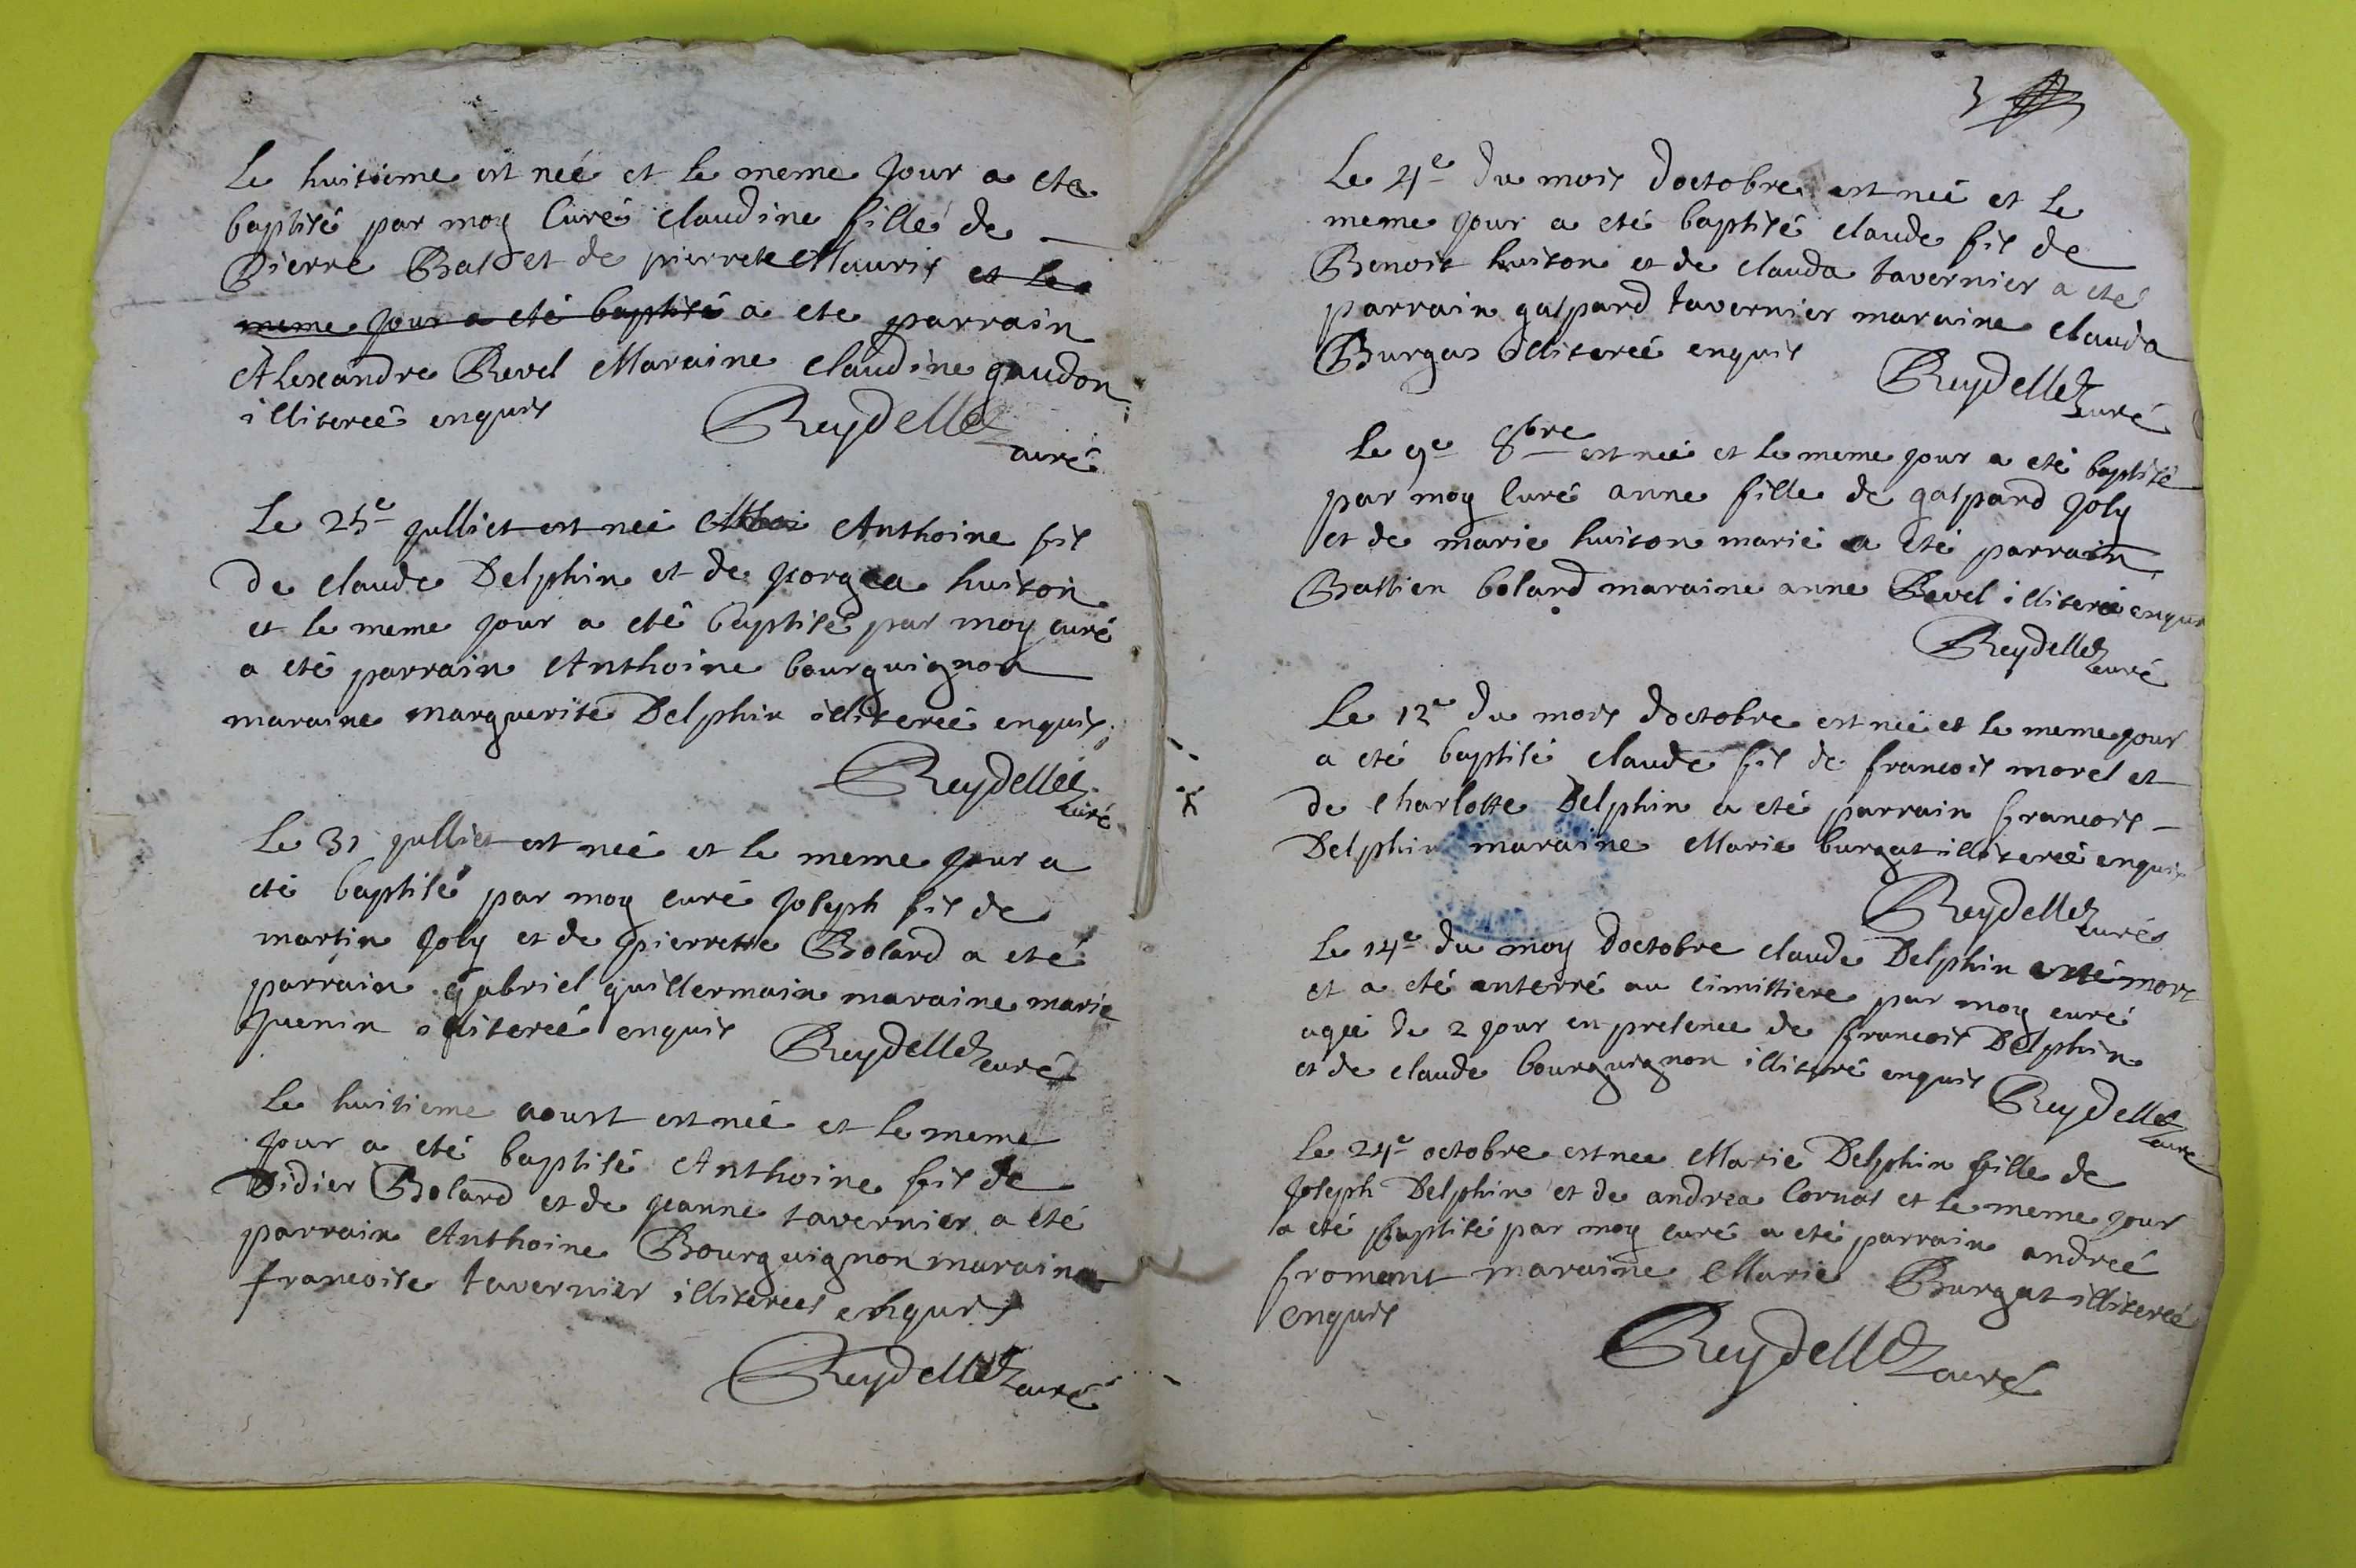 Le huitieme est neé et le meme jour a ete
baptisé par moy Curé Claudine fille de
Pierre Balset de pierrete Mauris et le
meme jour a eté baptisé a ete parrain
Alexandre Revel Maraine Claudine gaudon
illitereé enquis Reydellet
curé
Le 25e julliet est neé Anthoine fis
de Claude Delphin et de jorgea huison
et le meme jour a eté baptisé par moy curé
a eté parrain Anthoine bourguignon
maraine marguerite Delphin illitereé enquis
Reydellet
curé
Le 31 julliet est neé et le meme jour a
eté baptisé par moy curé joseph fis de
martin joly et de pierrette Bolard a eté
parrain gabriel guillermain maraine marie
juenin illitereé enquis Reydellet curé
Le huitieme aoust est neé et le meme
jour a eté baptisé Anthoine fis de
Didier Bolard et de jeanne tavernier a eté
parrain Anthoine Bourguignon maraine
francoise tavernier illiterees enquis
Reydellet curé
3
Le 4e du mois doctobre est neé et le
meme jour a eté baptisé claude fis de
Benoit huison et de clauda tavernier a eté
parrain gaspard tavernier maraine clauda
Burgas illitereé enquis Reydellet
curé
Le 9e 8bre est neé et le meme jour a eté baptisé
par moy Curé anne fille de gaspard joly
et de marie huison marié a eté parrain
Bastien bolard maraine anne Revel illitereé enquis
Reydellet curé
Le 12e du mois doctobre est neé et le meme jour
a eté baptisé claude fis de francois morel et
de Charlotte Delphin a eté parrain francois
Delphin maraine Marie burgat illitereé enquis
Reydellet curé
Le 14e du moy doctobre claude Delphin mort
et a eté anterré au cimittiere par moy curé
ageé de 2 jour en presence de francois Delphin
et de claude bourguignon illiteré enquis Reydellet
curé
Le 24e octobre est nee Marie Delphin fille de
joseph Delphin et de andrea Cornat et le meme jour
a eté baptisé par moy curé a eté parrain andreé
froment maraine Marie Burgat illitereé
enquis
Reydellet curé